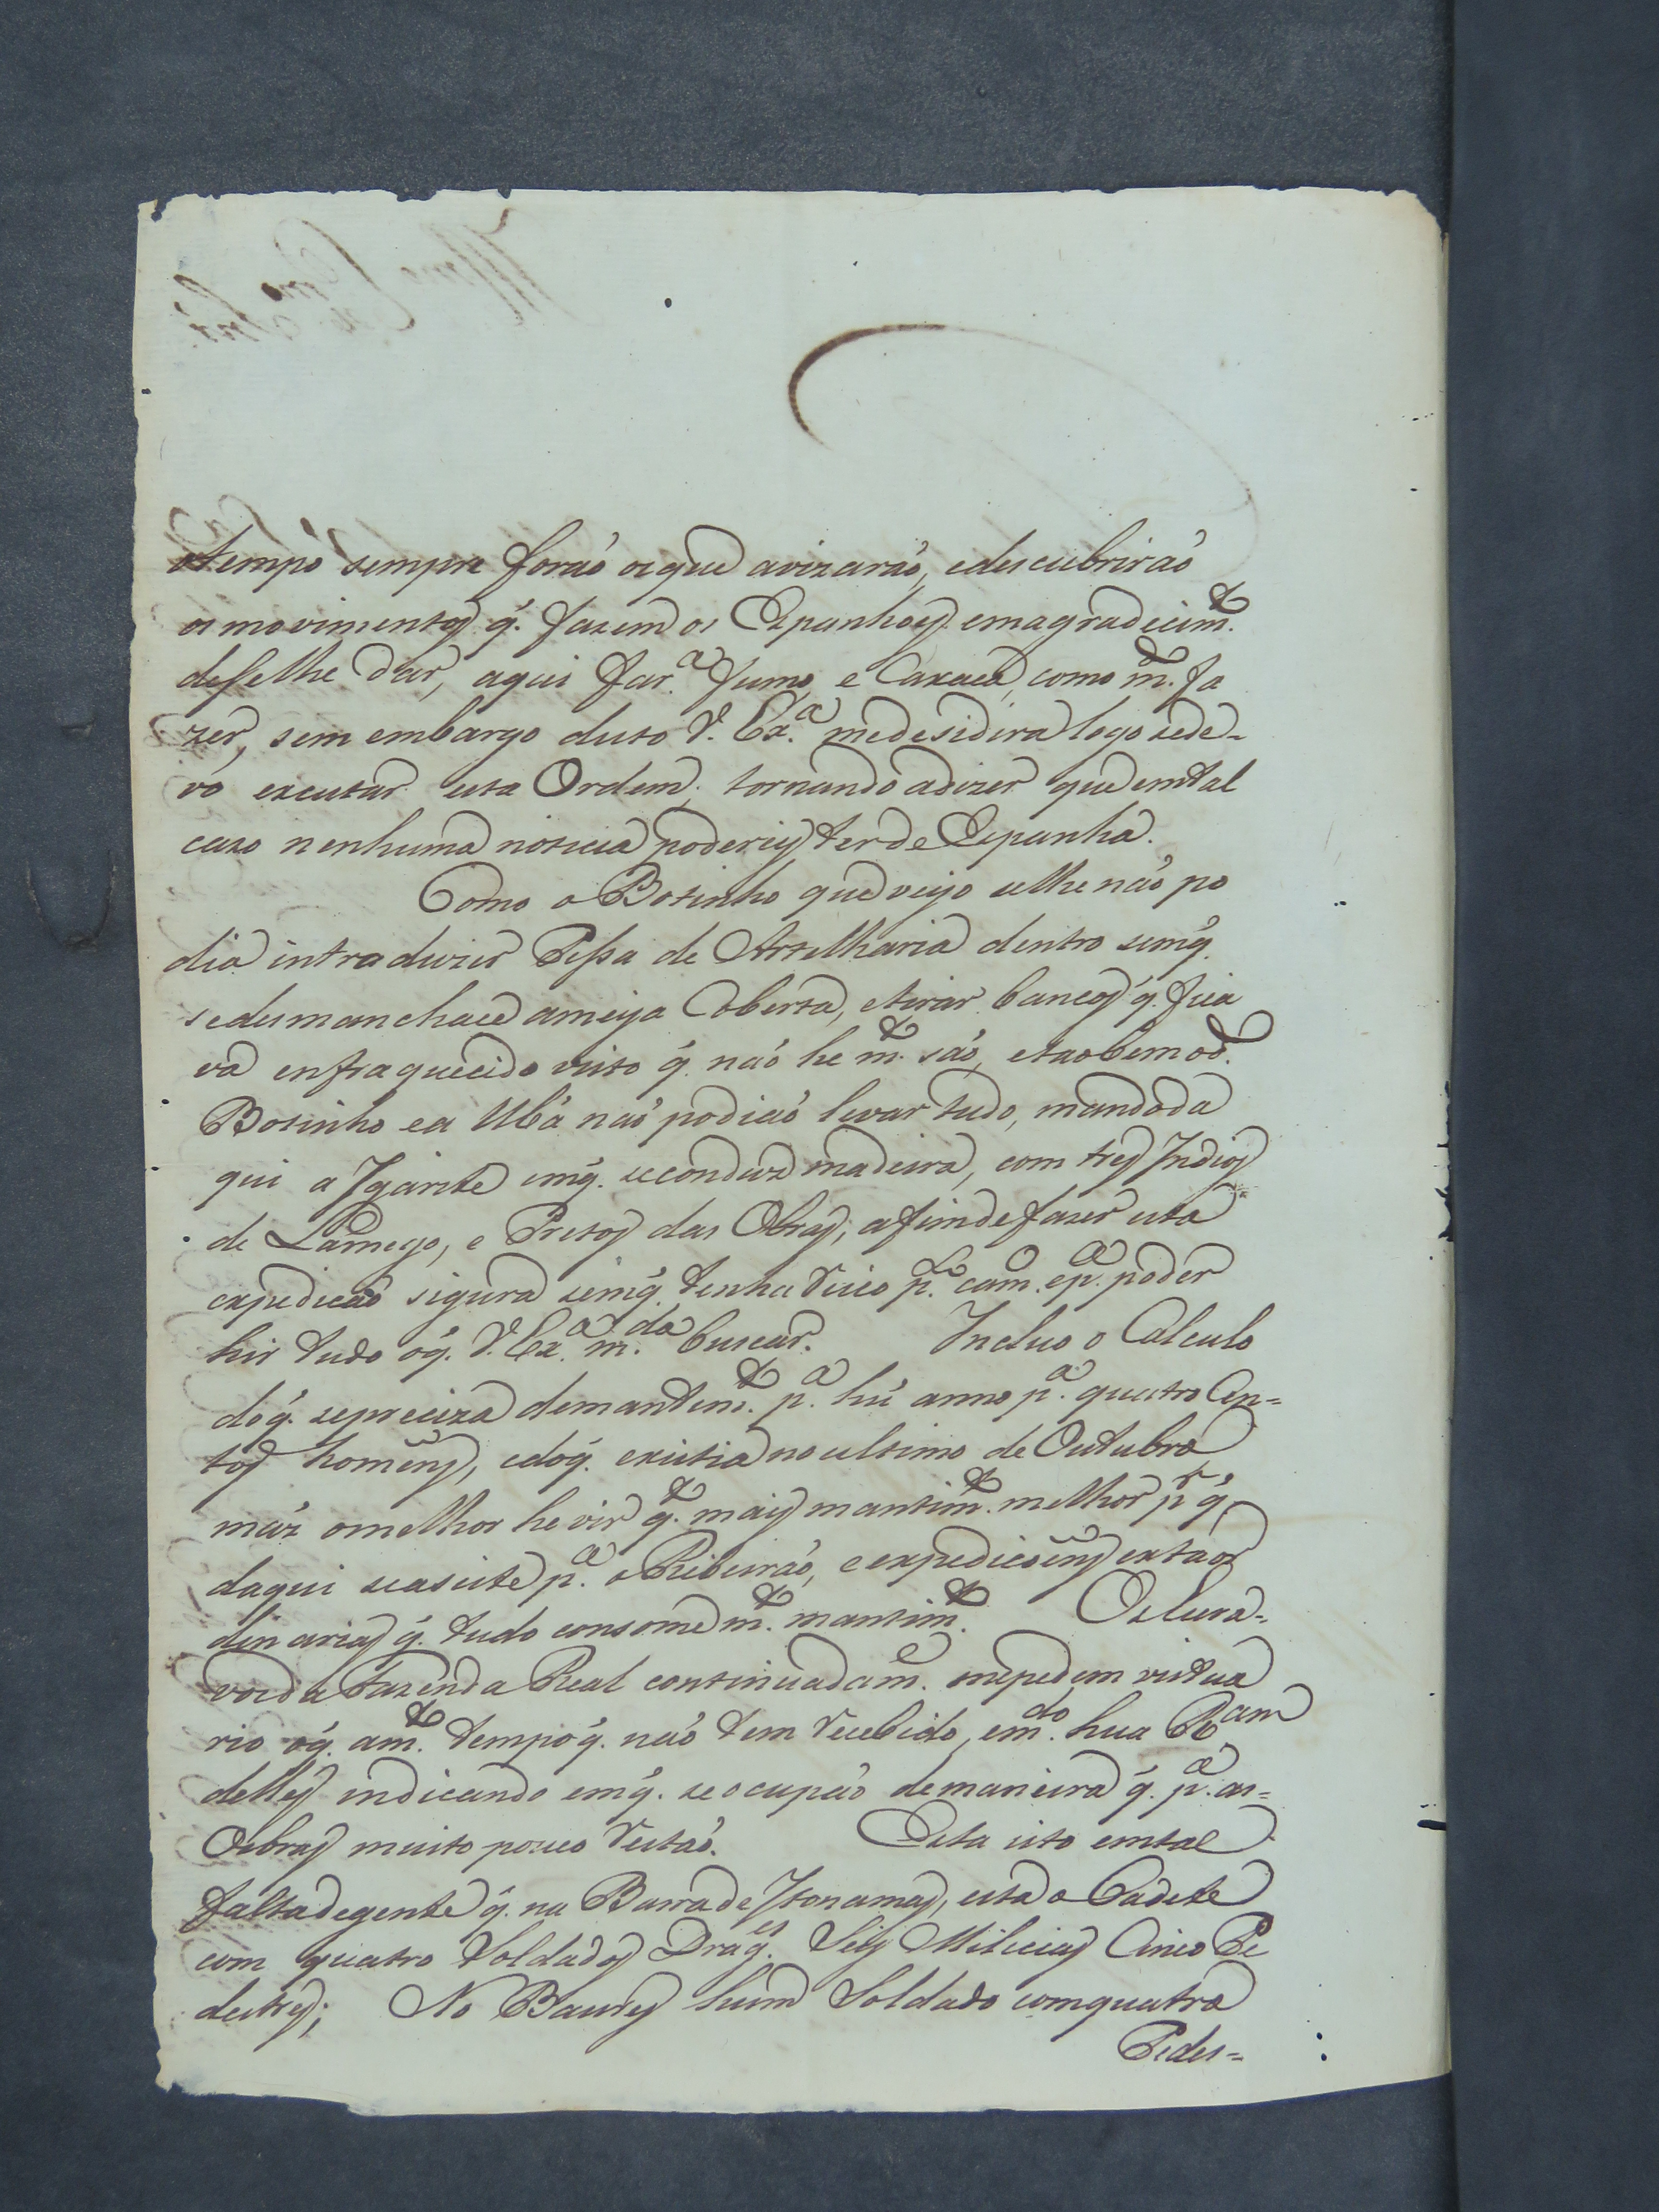 otempo sempre foraõ os que avizaraõ, edescubriraõ
os movimentos q̃. fazem os Espanhoes. emagradecim.to
desselhe dar, aqui far.a fumo, e Caxaca, como m.to fa
zer, sem embargo disto V. Ex.a medesidira logo sede-
vo executar esta Ordem; tornando adizer que emtal
cazo nenhuma noticia poderey ter de Espanha.
Como o Botinho que veyo selhe naõ po
dia intraduzir Pessa de Artelharia dentro semq̃.
sedesmanchace ameya Coberta, etirar bancos q̃. fica
va enfraquecido visto q̃. naõ he m.to saõ, etaobem od.o
Botinho ea Ubá naõ podiaõ levar tudo, mandoda
qui a Igarite emq̃. seconduz madeira, com tres Indios
de Lamego, e Pretos das Obras, afimdefazer esta
expedicaõ sigura semq̃. tenha risco p.lo cam.o ep.a poder
hir tudo oq̃. V. Ex.a m.da buscar. Incluo o Calculo
doq̃. sepreciza demantim.to p.a hũ anno p.a quatro Cen-
tos homẽns, edoq̃. existia no ultimo de Outubro
máz omelhor he vir q.to mais mantim.to melhor p.r q̃.
daqui seasiste p.a o Ribeiraõ, e expedicoẽns extaor
dinarias q̃. tudo consome m.to mantim.to Os Escra-
vos da Fazenda Real continuadam.e mepedem vistua
rio oq̃. am.to tempo q̃. naõ tem recebido, em.do hua R.cam
delles indicando emq̃. seocupaõ demaneira q̃. p.a as-
Osbras muito pouco restaõ. Esta isto emtal
falta de gente q̃. na Barra de Itonamas, esta o Cadete
com quatro Soldados Drag.es Seis Milicias Cinco Pe
destres; No Baures hum Soldado comquatro
Pedes-